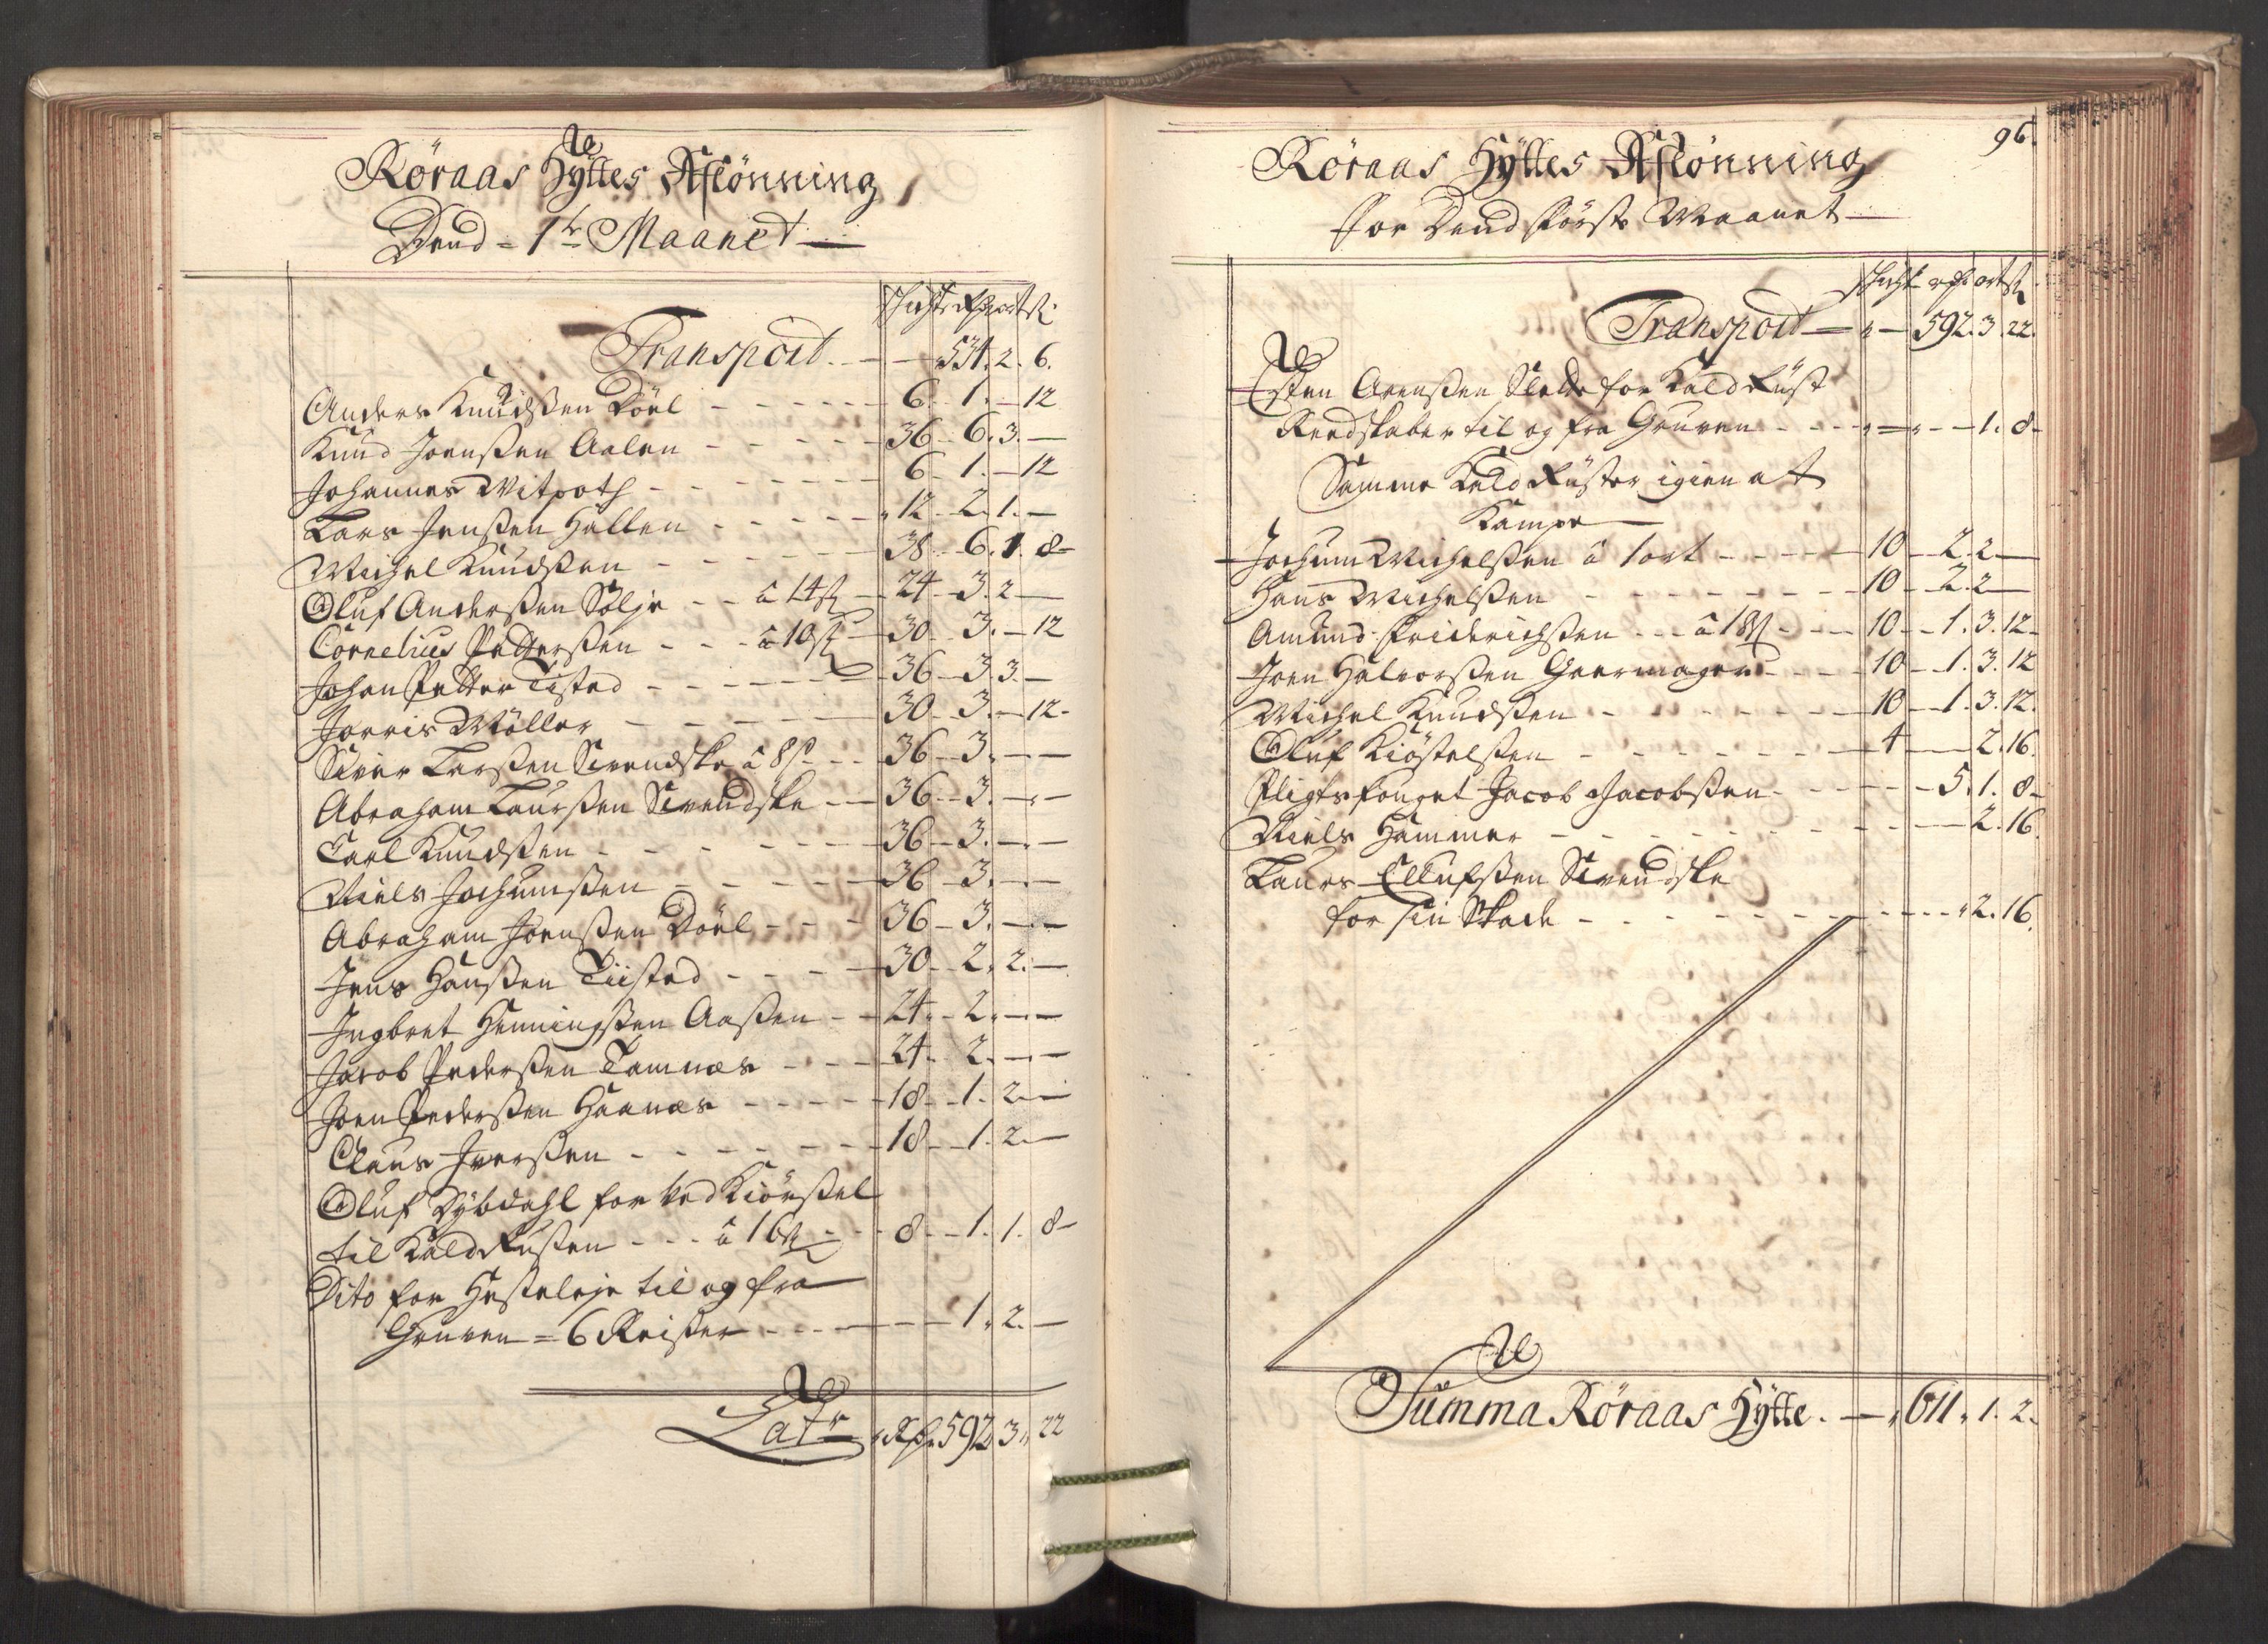 Röraas Hÿttes Aflönning
Dend = 1te Maanet
Schicht Rdr ort s
Transport. — — 534. 2. 6.
Anders Knudsßen Döel - - - - 6 - 1. - 12
Knud Joenßen Aalen - - - - 36 - 6. 3. —
Johannes Witpoth - - - - 6 - 1. - 12
Lars Jenßen Hallen - - - - 12 - 2. 1. —
Michel Knudsßen - - - - 38 - 6. 1. 8 -
Oluf Anderßen Sölje - - â 14 s - 24 - 3. 2 —
Cornelius Petterßen - - - â 10 s - 30 - 3. - 12
Johan Petter Tisted - - - - 36 - 3. 3. —
Jörris Möller - - - - 30 - 3. - 12 -
Siver Larßen Svendske â 8 s - - 36 - 3. - —
Abraham Laurßen Svendske - - 36 - 3. - —
Carl Knudsßen - - - - 36 - 3. - —
Niels Jochumßen - - - - 36 - 3. - —
Abraham Joenßen Döel - - - 36 - 3. - —
Jens Hanßen Tiisted - - - - 30 - 2. 2. —
Ingbret Henningßen Aaßen - - 24 - 2. - —
Jacob Pederßen Tamnes - - - 24 - 2. - —
Joen Pederßen Haanes - - - - 18 - 1. 2. —
Claus Iverßen - - - - 18 - 1. 2. —
Oluf Dÿbdahl for Ved Kiörßel
til Kald Rusten - - - â 16 s - - 8 - 1. 1. 8 -
Dito for Hesteleje til og fra
Gruven = 6 Reißer - - - — 1. 2. —
Latr Rdr 592. 3. 22
96.
Röraas Hÿttes Aflönning
for Dend förste Maanet
Schicht Rdr ort s
Transport — 592. 3. 22.
Esten Arenßen Slette for Kald Rüst
Reedskaber til og fra Gruven - - - - - 1. 8 -
Samme Kald Rüster igien at
Kampe
Jochum Michelßen â 1 ort - - - - 10 - 2. 2 —
Hans Michelßen - - - - 10 - 2. 2 —
Amund Friderichßen - - - â 18 s - - - 10 - 1. 3. 12 -
Joen Halvorßen Gaarmager - - - 10 - 1. 3. 12
Michel Knudsßen - - - - 10 - 1. 3. 12.
Oluf Kiöstelßen - - - - 4 — 2. 16.
Pligtsfouget Jacob Jacobßen - - - - 5. 1. 8 -
Niels Hammer - - - - 2. 16.
Laurs Ellufßen Svendske
for sin Skade - - - - 2. 16.
Summa Röraas Hÿtte. — 611. 1. 2.